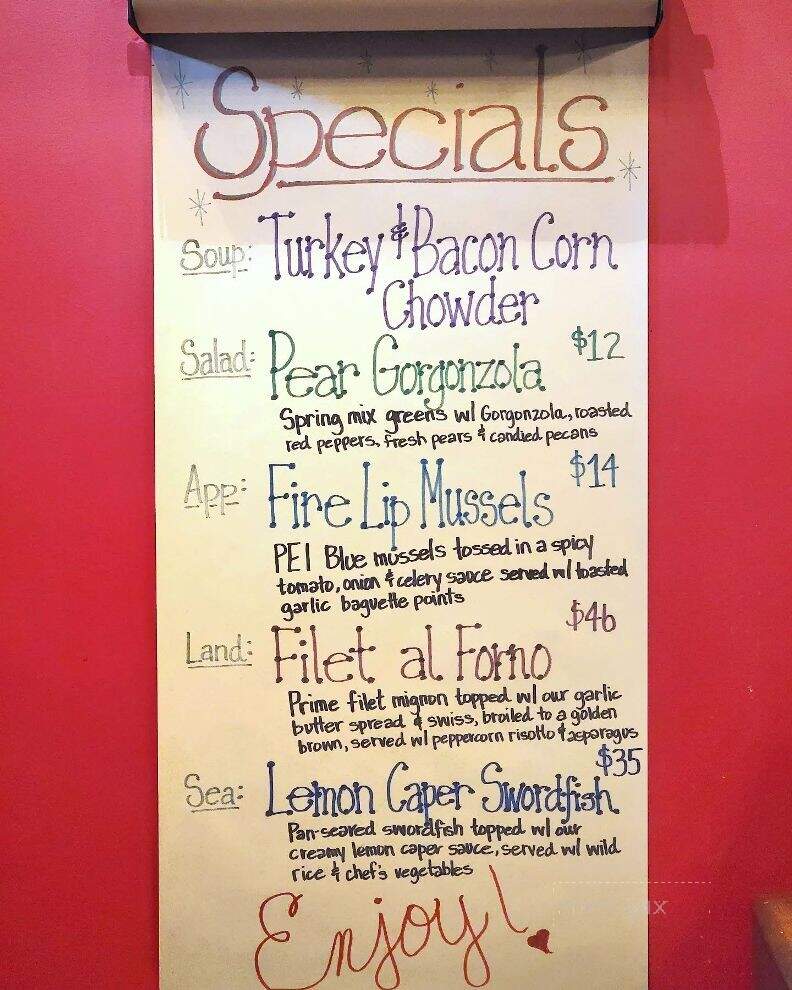 Specials
Soup: Turkey & Bacon Corn
Chowder
Salad: Pear Gorgonzola $12
Spring mix greens w/ Gorgonzola, roasted
red peppers, fresh pears & candied pecans
App: Fire Lip Mussels $14
PEI Blue mussels tossed in a spicy
tomato, onion & celery sauce served w/ toasted
garlic baguette points
Land: Filet al Forno $46
Prime filet mignon topped w/ our garlic
butter spread & swiss, broiled to a golden
brown, served w/ peppercorn risotto & asparagus
Sea: Lemon Caper Swordfish $35
Pan-seared swordfish topped w/ our
creamy lemon caper sauce, served w/ wild
rice & chef's vegetables
Enjoy!